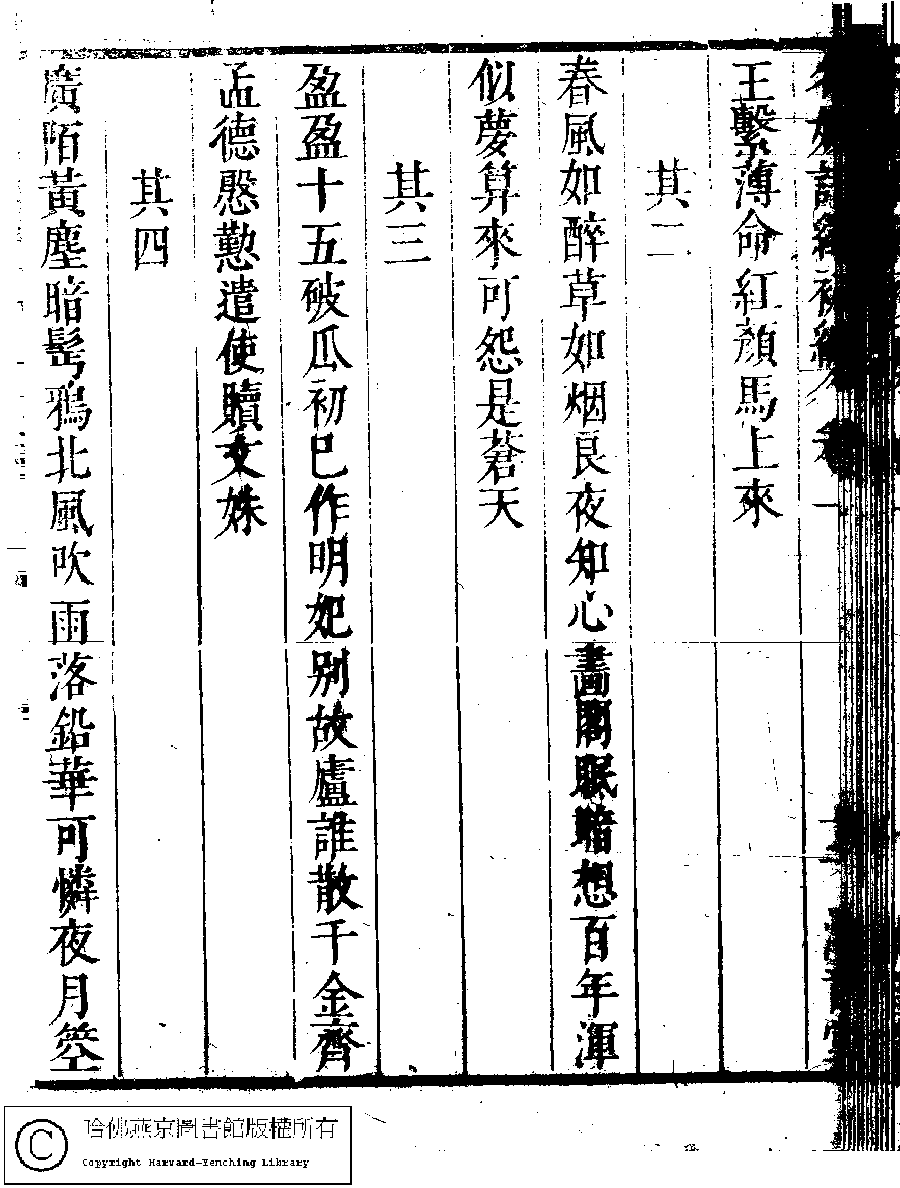 王繫薄命紅顏馬上來
其二
春風如醉草如烟良夜知心畵閣眠暗想百年渾
似夢算來可怨是蒼天
其三
盈盈十五破瓜初已作明妃别故廬誰散千金齊
孟德慇懃遣使贖文姝
其四
廣陌黃塵暗髩鴉北風吹雨落鉛華可憐夜月箜
哈佛燕京圖書館版權所有
Copyright Harvard-Yenching Library